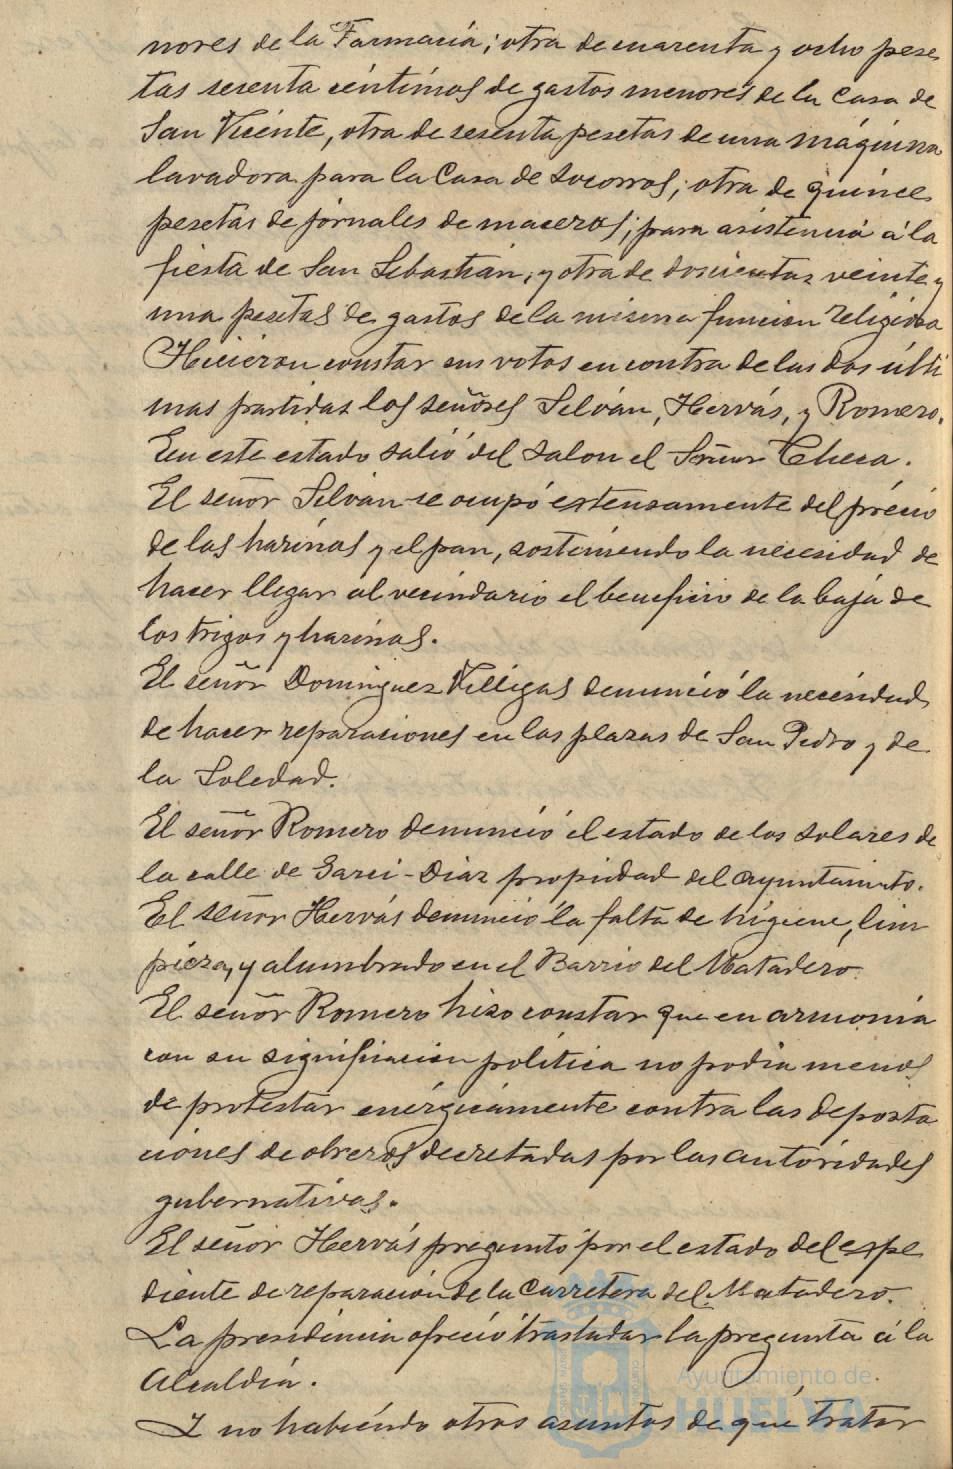 nores de la Farmacia; otra de cuarenta y ocho pese
tas sesenta céntimos de gastos menores de la Casa de
San Vicente, otra de sesenta pesetas de una máquina
lavadora para la Casa de Socorros; otra de quince
pesetas de jornales de maceros; para asistencia á la
fiesta de San Sebastián; y otra de doscientas veinte y
una pesetas de gastos de la misma funcion religiosa
Hicieron constar sus votos en contra de las dos últi
mas partidas los señores Selván, Hervás, y Romero.
En este estado salió del salon el Señor Checa.
El señor Selván se ocupó estensamente del précio
de las harinas y el pan, sosteniendo la necesidad de
hacer llegar al vecindario el beneficio de la baja de
los trigos y harinas.
El señor Dominguez Villegas denunció la necesidad
de hacer reparaciones en las plazas de San Pedro y de
la Soledad.
El señor Romero denunció el estado de los solares de
la calle de Garci-Diaz propiedad del Ayuntamiento.
El señor Hervás denunció la falta de higiene, lim
pieza, y alumbrado en el Barrio del Matadero.
El señor Romero hizo constar que en armonia
con su significacion política no podia menos
de protestar enérgicamente contra las deporta
ciones de obreros decretadas por las autoridades
gubernativas.
El señor Hervás preguntó por el estado del espe
diente de reparacion de la Carretera del Matadero.
La presidencia ofreció trasladar la pregunta á la
Alcaldia.
Ayuntamiento de
HUELVA
Y no habiendo otros asuntos de que tratar